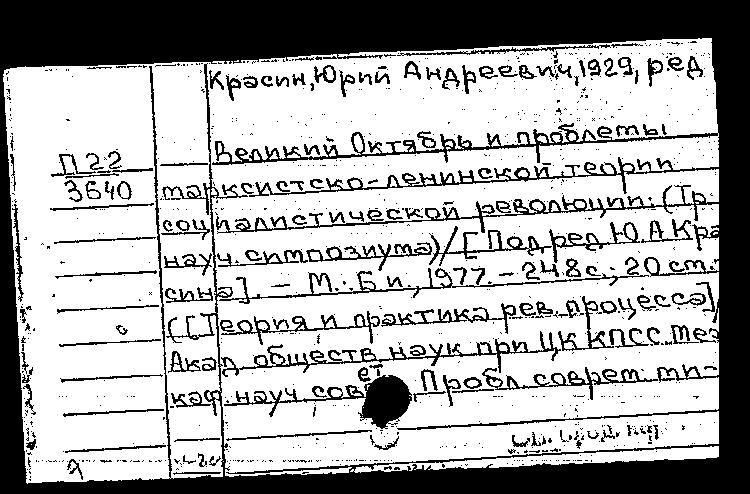 Красин, Юрий Андреевич, 1929, ред
П 22
3640
Великий Октябрь и проблемы
марксистско-ленинской теории
социалистической революции: (Тр.
науч. симпозиума) / [Под ред Ю.А Кра
сина]. – М.: Б.и., 1977. – 248с.; 20 см. –
([Теория и практика рев. процесса]/
Акад. обществ. наук при ЦК КПСС Меж
каф. науч. совет Пробл. соврем. ми-